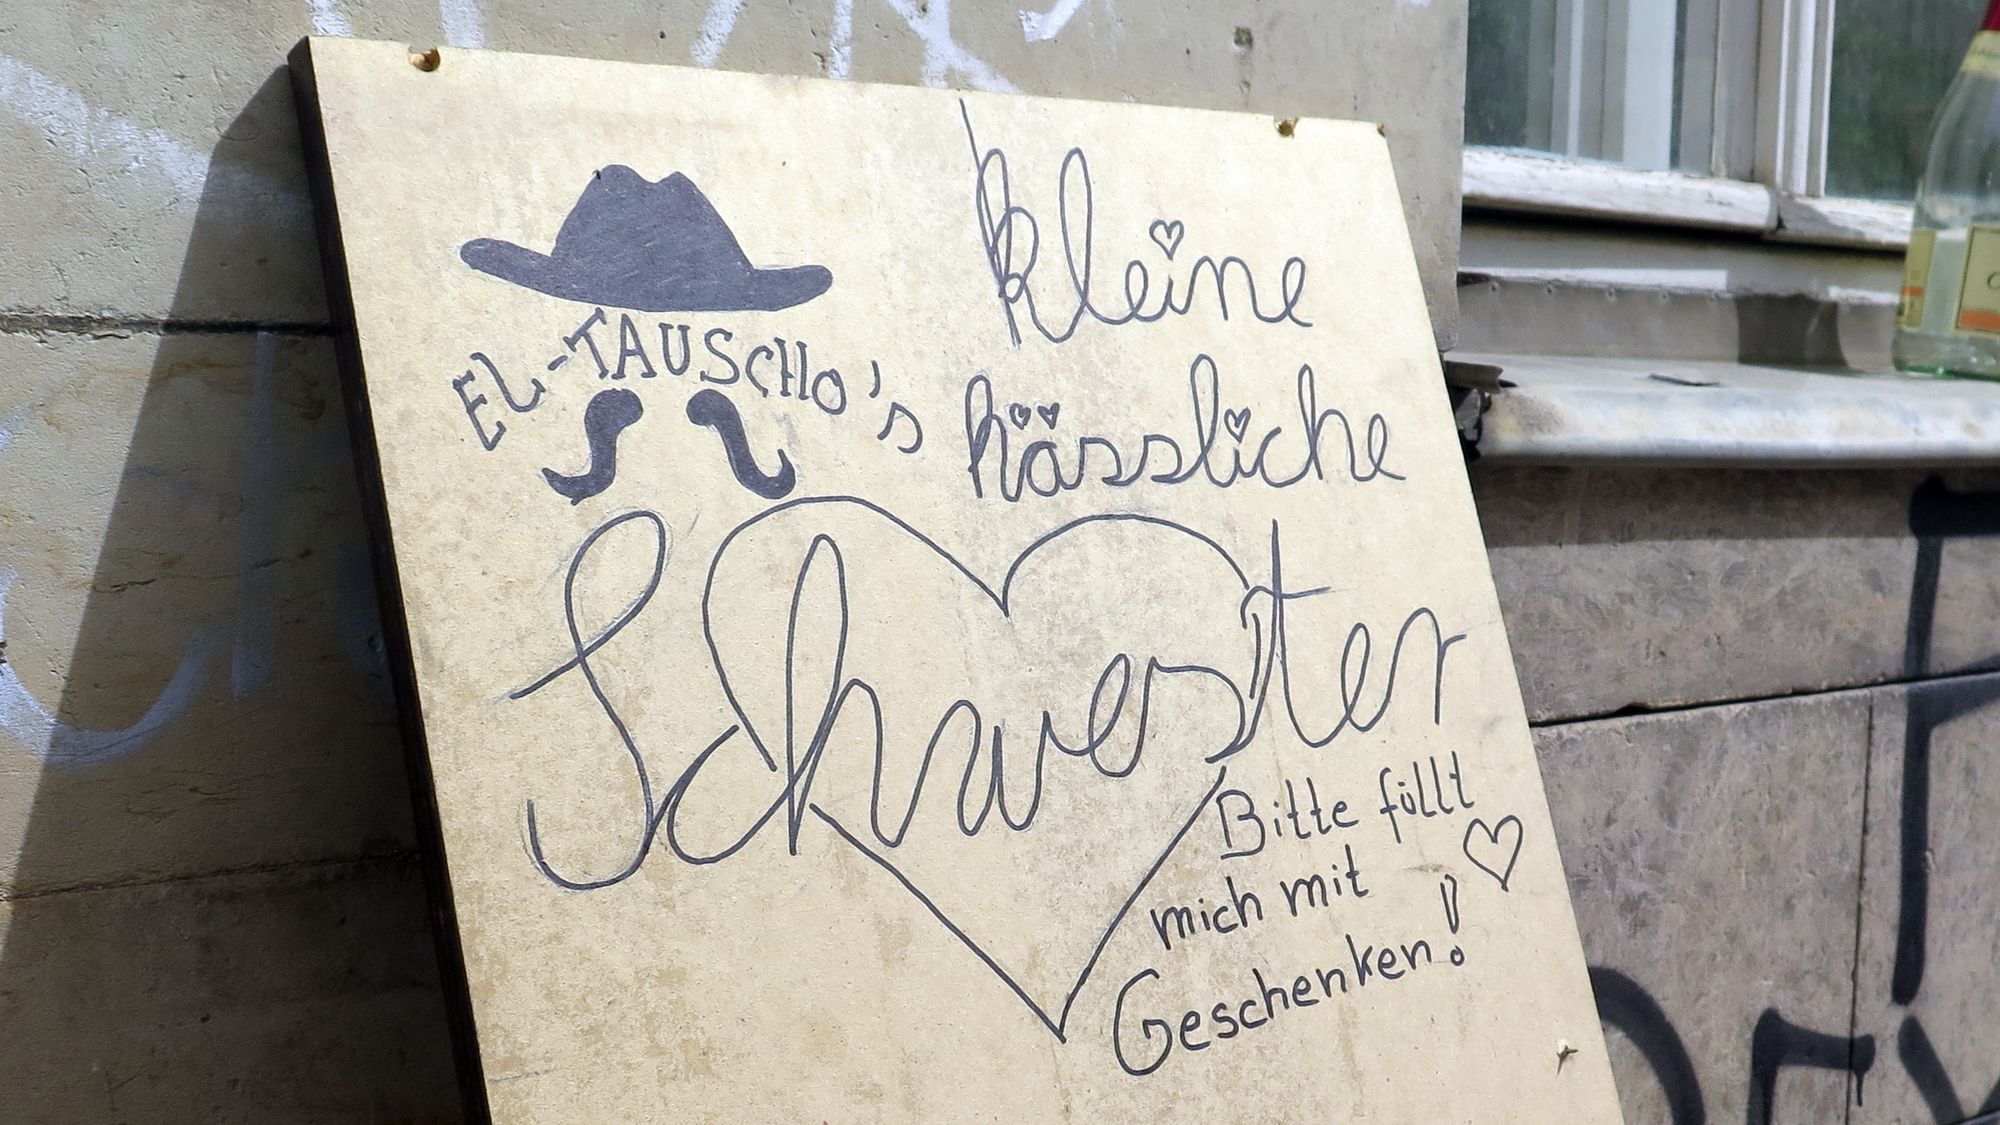 EL-TAUSCHO's
kleine
hässliche
Schwester
Bitte füllt
mich mit
Geschenken!